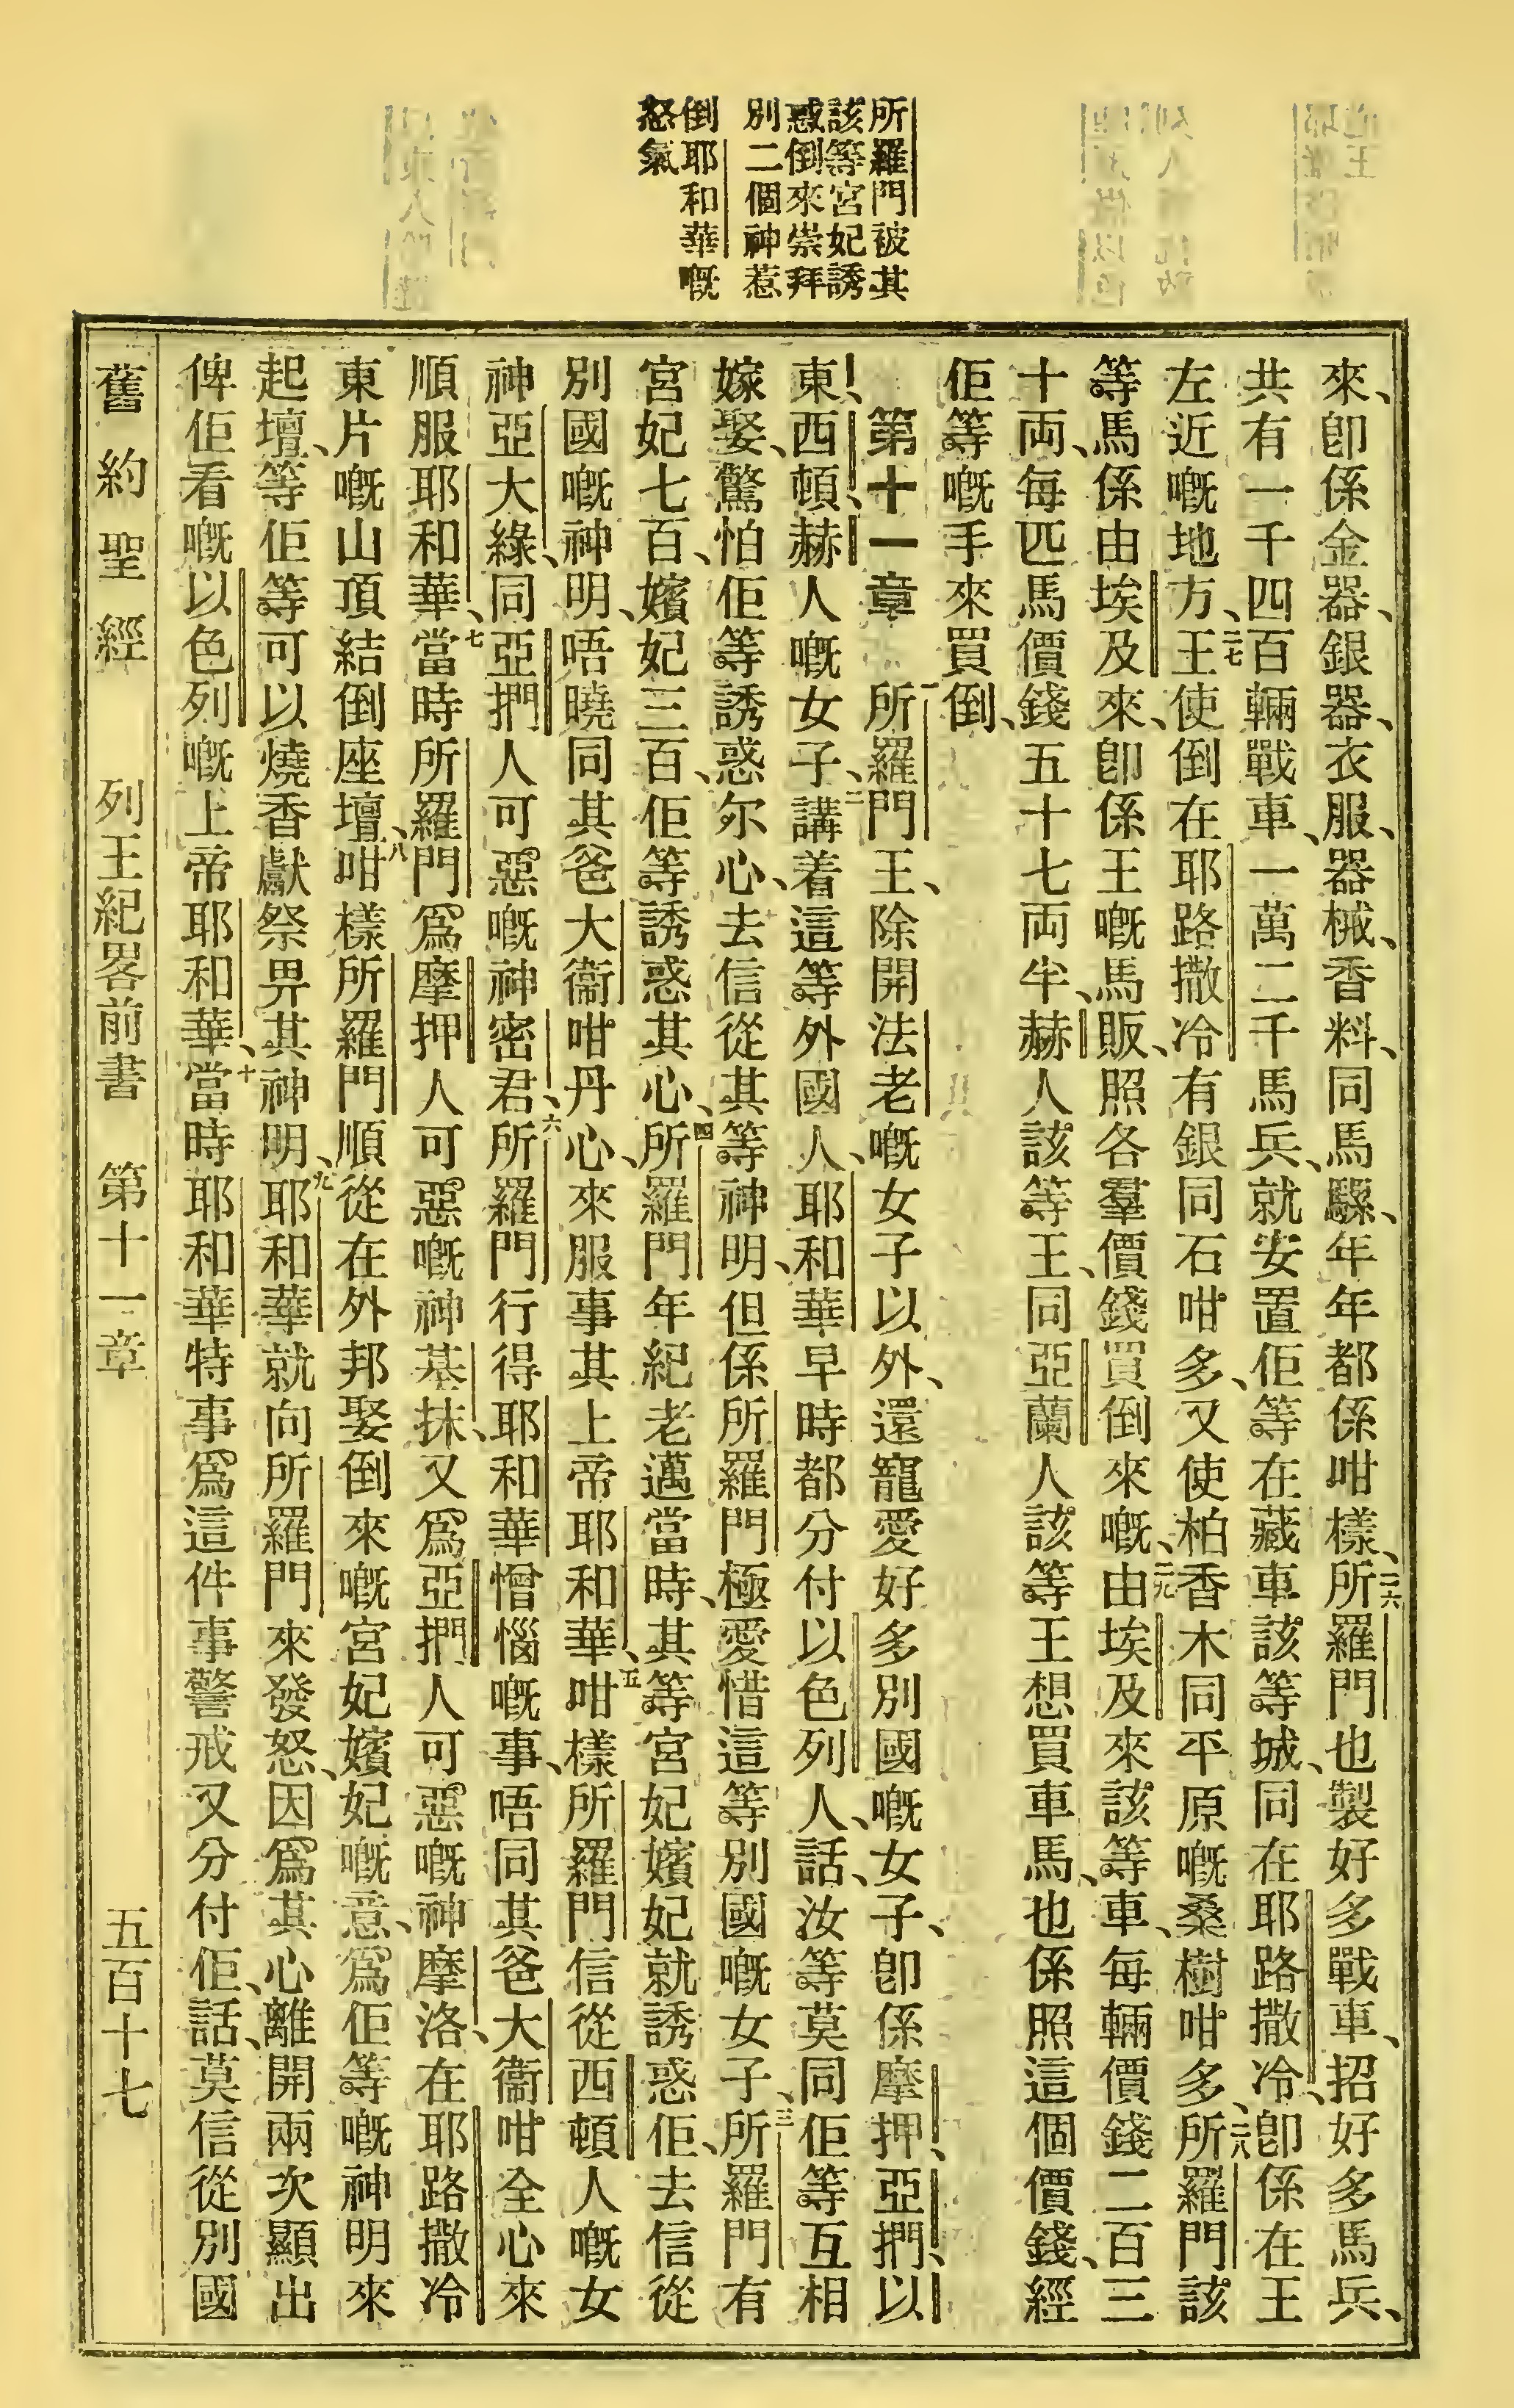 所羅門被其
該等宮妃誘
惑倒來崇拜
別二個神惹
倒耶和華嘅
怒氣
來、卽係金器、銀器、衣服、器械、香料、同馬騾、年年都係咁樣、二六所羅門也製好多戰車、招好多馬兵、
共有一千四百輛戰車、一萬二千馬兵、就安置佢等在藏車該等城、同在耶路撒冷、卽係在王
左近嘅地方、二七王使倒在耶路撒冷有銀同石咁多、又使柏香木同平原嘅桑樹咁多、二八所羅門該
等馬係由埃及來、卽係王嘅馬販、照各羣價錢買倒來嘅、二九由埃及來該等車、每輛價錢二百三
十両、每匹馬價錢五十七両半、赫人該等王、同亞蘭人該等王想買車馬、也係照這個價錢、經
佢等嘅手來買倒、
第十一章 一所羅門王、除開法老嘅女子以外、還寵愛好多別國嘅女子、卽係摩押、亞捫、以
東、西頓、赫人嘅女子、二講着這等外國人、耶和華早時都分付以色列人、話、汝等莫同佢等互相
嫁娶、驚怕佢等誘惑尔心、去信從其等神明、但係所羅門極愛惜這等別國嘅女子、三所羅門有
宮妃七百、嬪妃三百、佢等誘惑其心、四所羅門年紀老邁當時、其等宮妃嬪妃就誘惑佢、去信從
別國嘅神明、唔曉同其爸大衞咁丹心、來服事其上帝耶和華、五咁樣所羅門信從西頓人嘅女
神亞大綠、同亞捫人可惡嘅神密君、六所羅門行得耶和華憎惱嘅事、唔同其爸大衞咁全心來
順服耶和華、七當時所羅門爲摩押人可惡嘅神基抹、又爲亞捫人可惡嘅神摩洛、在耶路撒冷
東片嘅山頂結倒座壇、八咁樣所羅門順從在外邦娶倒來嘅宮妃嬪妃嘅意、爲佢等嘅神明來
起壇、等佢等可以燒香獻祭畀其神明、九耶和華就向所羅門來發怒、因爲其心離開兩次顯出
俾佢看嘅以色列嘅上帝耶和華、十當時耶和華特事爲這件事警戒又分付佢、話、莫信從別國
舊約聖經 列王紀畧前書 第十一章 五百十七